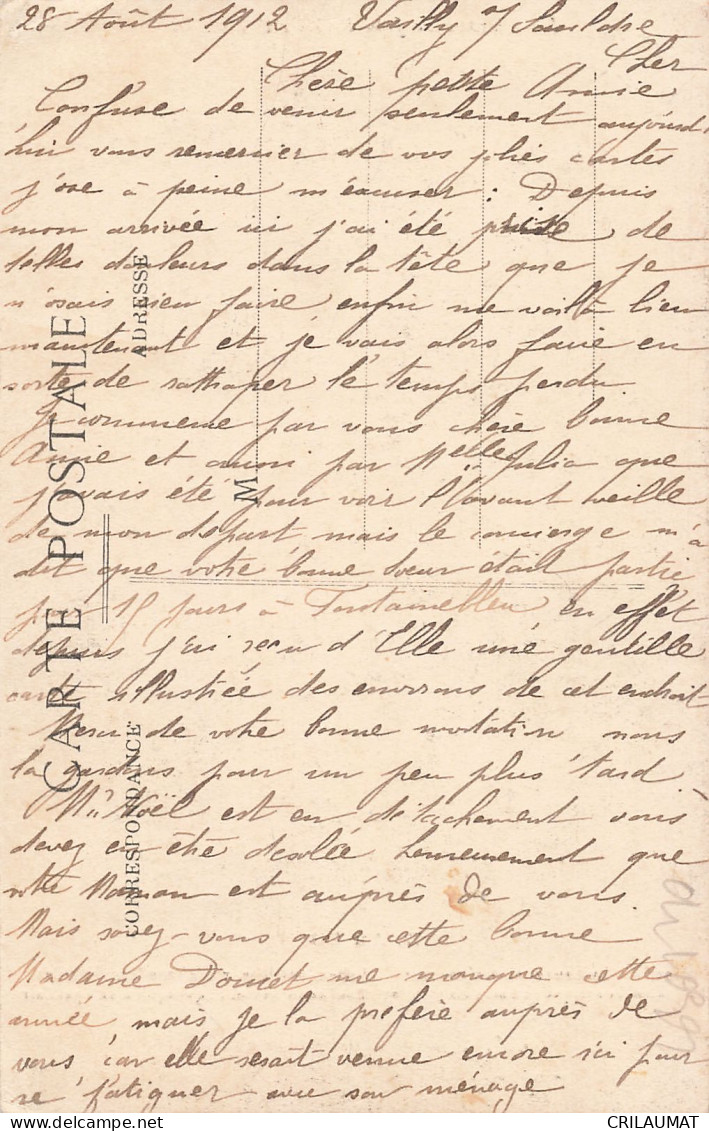 28 Août 1912 Vailly s/ Sauldre
Cher
Chère petite Annie
Confuse de venir seulement aujourd
hui vous remercier de vos jolies cartes
j'ose à peine m'excuser : Depuis
mon arrivée ici j'ai été prise de
telles douleurs dans la tête que je
n'osais rien faire enfin me voilà bien
maintenant et je vais alors faire en
sorte de rattraper le temps perdu
Je commence par vous chère bonne
Annie et aussi par Melle Julia que
j'avais été pour voir l'avant veille
de mon départ mais le concierge m'a
dit que votre bonne soeur était partie
pour 15 jours à Fontainebleu en effet
depuis j'ai reçu d'Elle une gentille
carte illustrée des environs de cet endroit
Merci de votre bonne invitation nous
la gardons pour un peu plus tard
Mr Noël est en détachement vous
devez en être desolée heureusement que
votre Maman est auprès de vous
Mais savez-vous que cette bonne
Madame Doucet me manque cette
année mais je la préfère auprès de
vous car elle serait venue encore ici pour
se fatiguer avec son ménage
CARTE POSTALE
CORRESPONDANCE
ADRESSE
M
CRILAUMAT